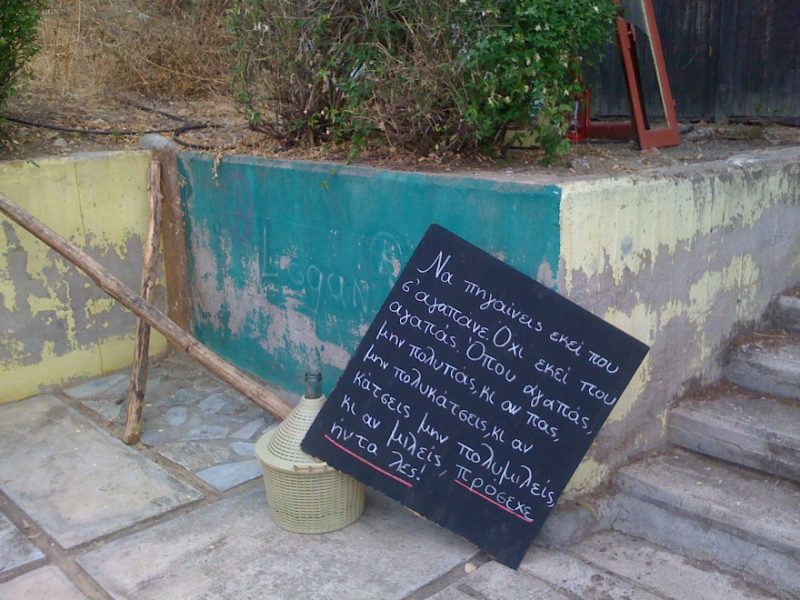 Logan
Να πηγαίνεις εκεί που
σ' αγαπάνε. Όχι εκεί που
αγαπάς. Όπου αγαπάς,
μην πολυπάς, κι αν πας,
μην πολυκάτσεις, κι αν
κάτσεις μην πολυμιλείς,
κι αν μιλείς, πρόσεχε
ήντα λες!